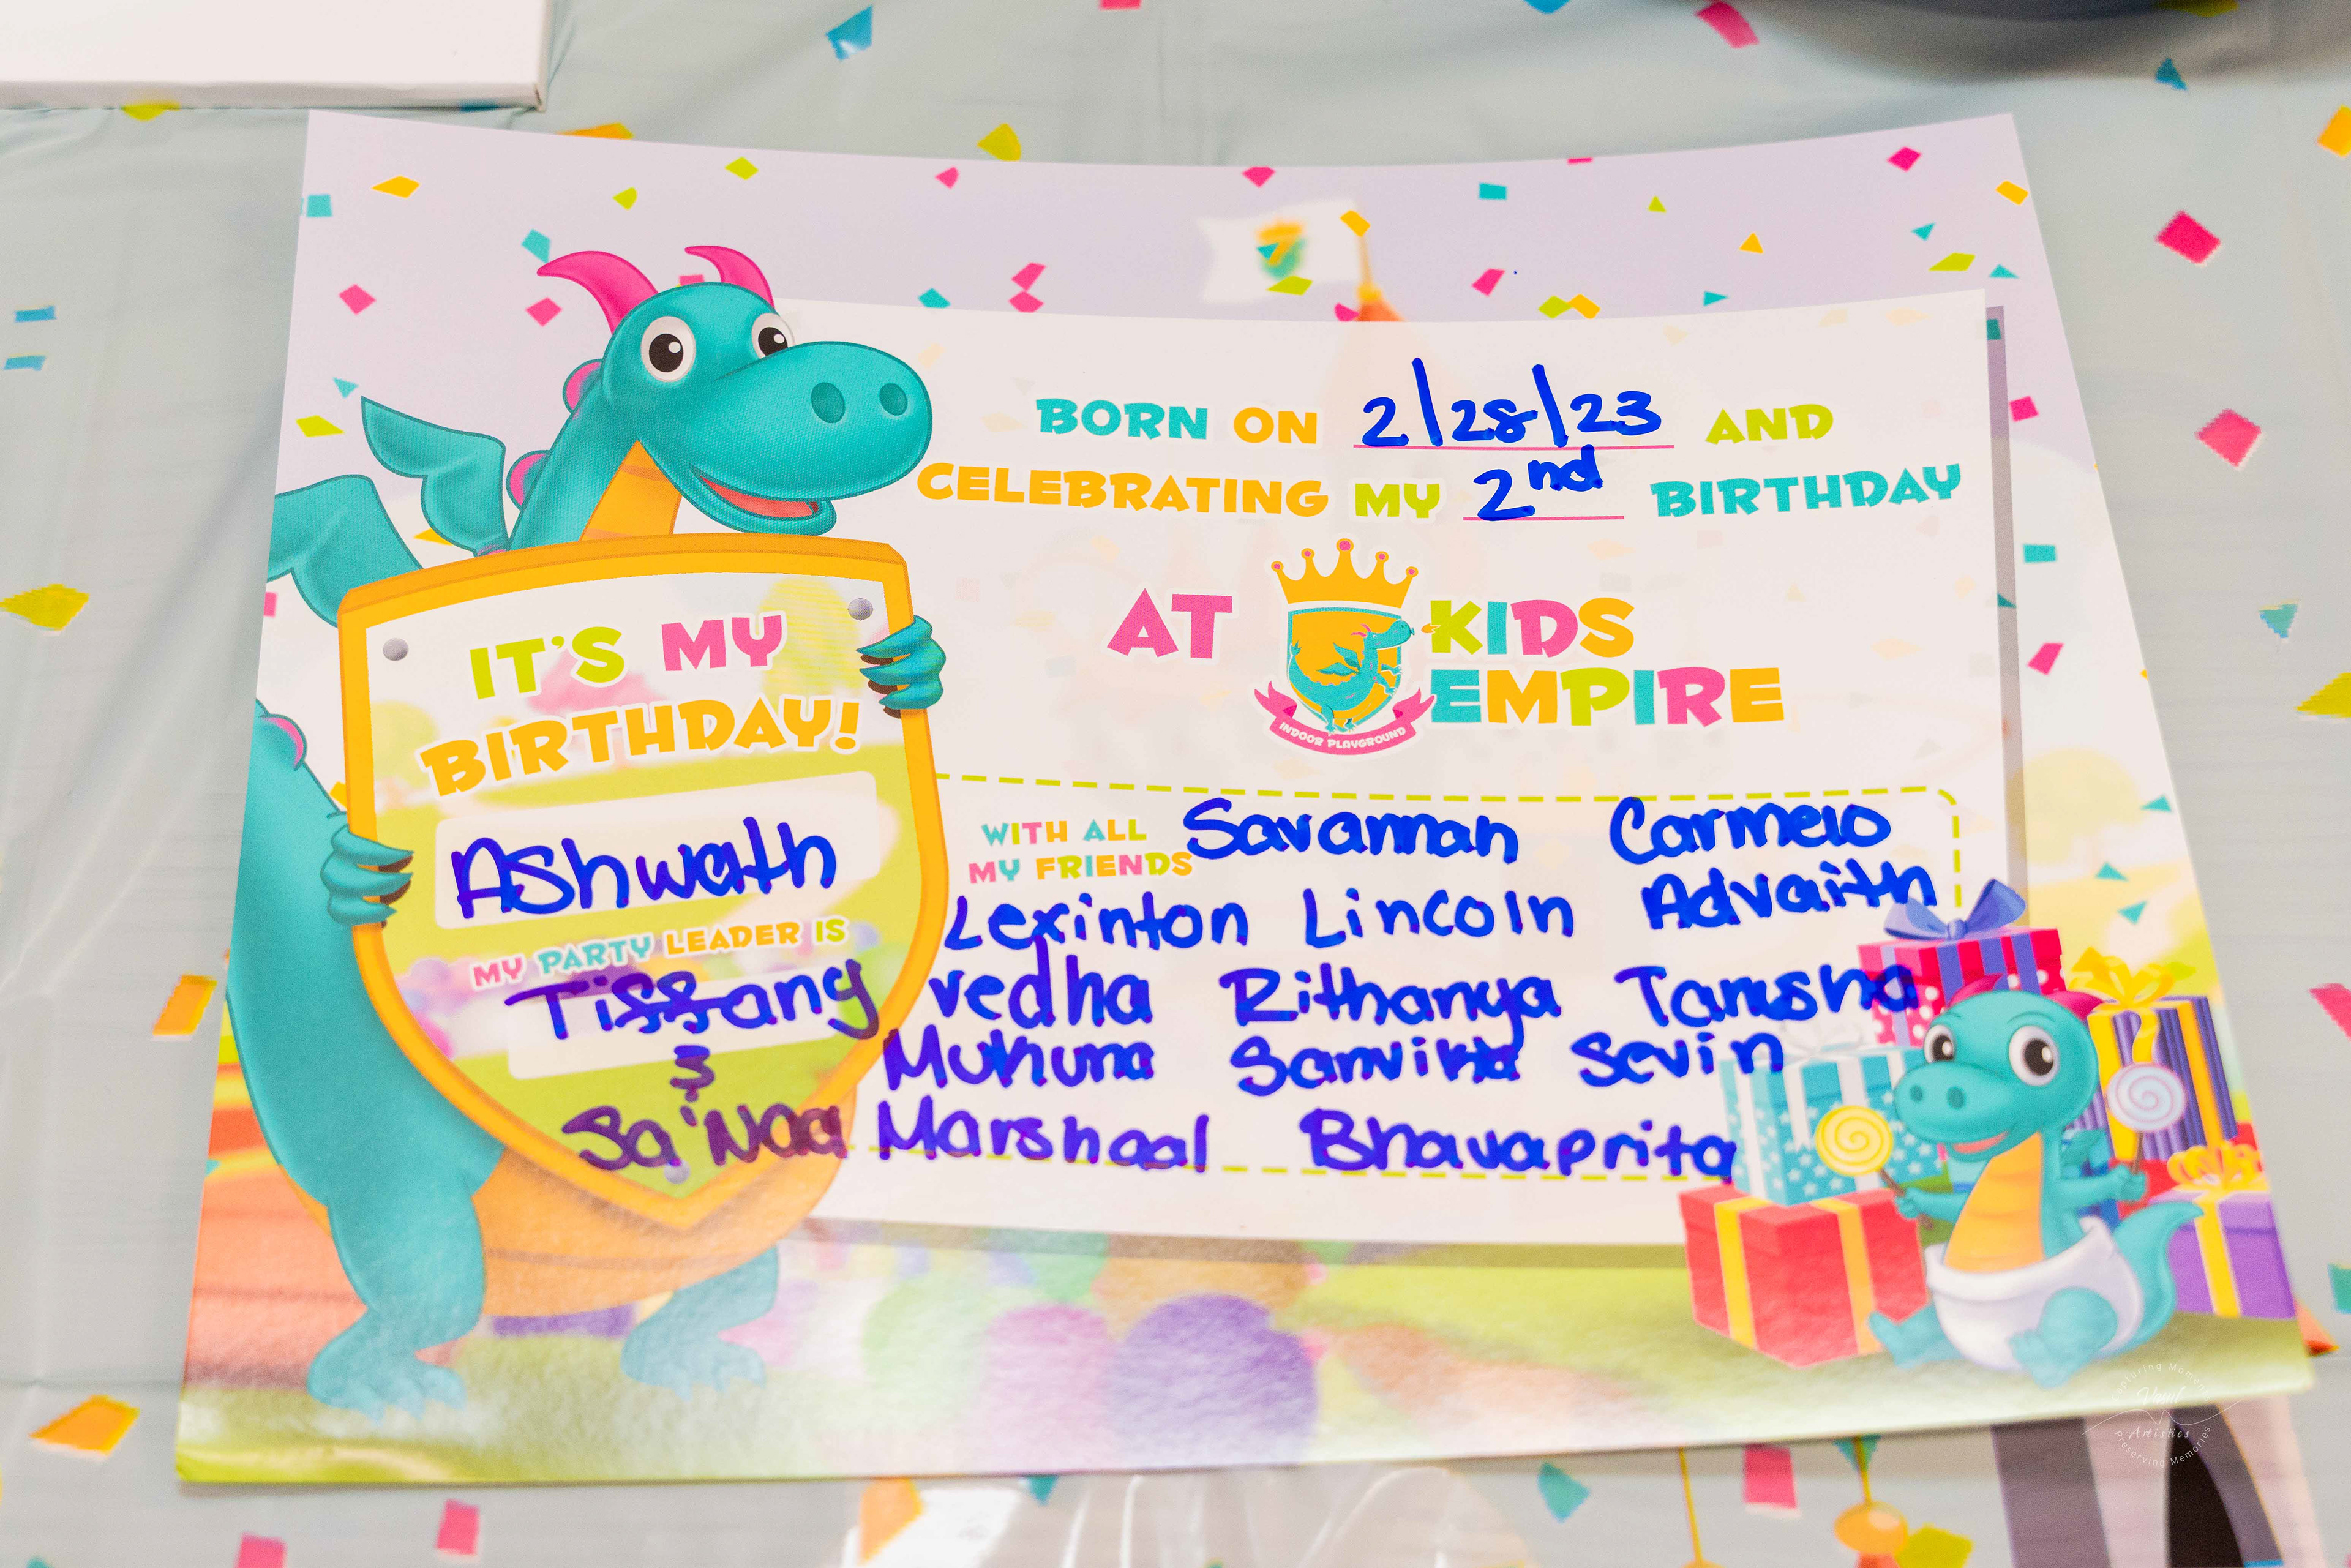 BORN ON 2/28/23 AND
CELEBRATING MY 2nd BIRTHDAY
AT KIDS
EMPIRE
INDOOR PLAYGROUND
IT'S MY
BIRTHDAY!
Ashwath
MY PARTY LEADER IS
Tiffany
&
Sa'Naa
WITH ALL
MY FRIENDS
Savannah Carmelo
Lexinton Lincoln Advaith
vedha Rithanya Tanisha
Sanvika Sevin
Marshaal Bhavaprita
Capturing Memories
Artistics
Preserving Memories